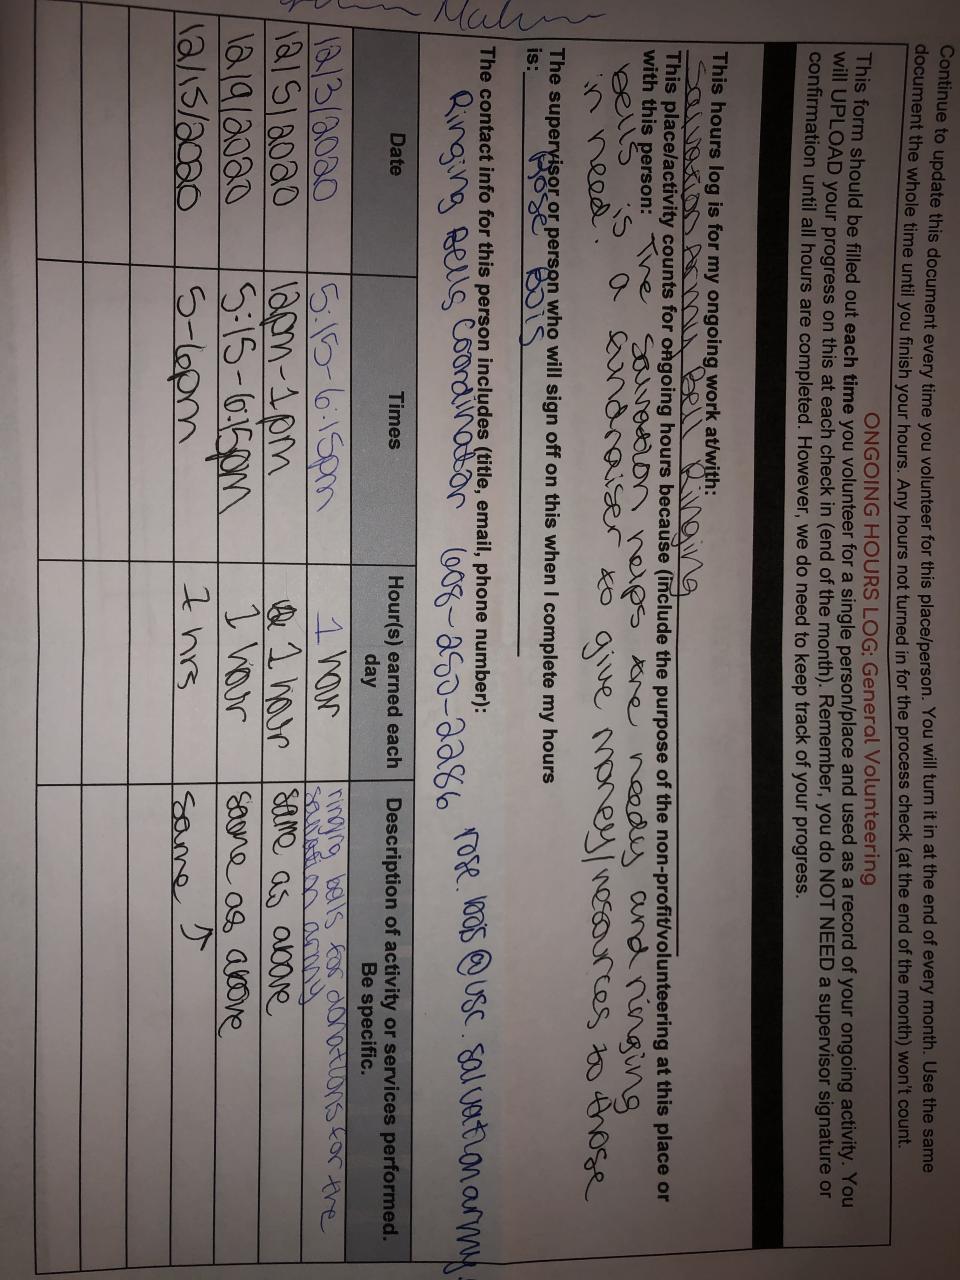 Continue to update this document every time you volunteer for this place/person. You will turn it in at the end of every month. Use the same
document the whole time until you finish your hours. Any hours not turned in for the process check (at the end of the month) won't count.
ONGOING HOURS LOG: General Volunteering
This form should be filled out each time you volunteer for a single person/place and used as a record of your ongoing activity. You
will UPLOAD your progress on this at each check in (end of the month). Remember, you do NOT NEED a supervisor signature or
confirmation until all hours are completed. However, we do need to keep track of your progress.
This hours log is for my ongoing work at/with:
Salvation Army Bell Ringing
This place/activity counts for ongoing hours because (include the purpose of the non-profit/volunteering at this place or
with this person: The Salvation helps the needy and ringing
bells is a fundraiser to give money/resources to those
in need.
The supervisor or person who will sign off on this when I complete my hours
is: Rose Bois
The contact info for this person includes (title, email, phone number):
Ringing Bells Coordinator 608-250-2286 rose.bois@usc.salvationarmy.
Date Times Hour(s) earned each day Description of activity or services performed. Be specific.
12/3/2020 5:15-6:15pm 1 hour ringing bells for donations for the salvation army
12/5/2020 12pm-1pm 1 hour same as above
12/9/2020 5:15-6:15pm 1 hour same as above
12/15/2020 5-6pm 1 hrs same ↑